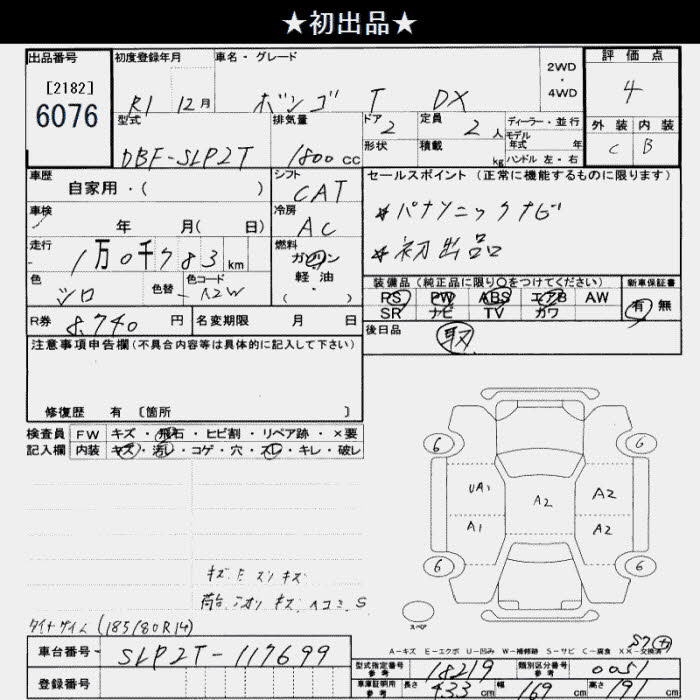 ★初出品★
出品番号 初度登録年月 車名・グレード 2WD・4WD 評価点
[2182]
6076 R1 12月 ボンゴ T DX 4
型式 排気量 ドア 定員 ディーラー・並行 外装 内装
DBF-SLP2T 1800cc 2 2人 モデル年式 年 C B
形状 積載 kg ハンドル 左・右
車歴 シフト セールスポイント (正常に機能するものに限ります)
自家用・( ) CAT
車検 冷房 *パナソニックナビ
年 月( 日) AC *初出品
走行 燃料
1万0千783km ガソリン
軽油
・
( )
色 色替 色コード 装備品 (純正品に限り○をつけてください) 新車保証書
シロ A2W PS PW ABS エアB AW 有 無
SR ナビ TV カワ
R券 8,740円 名変期限 月 日 後日品 取
注意事項申告欄 (不具合内容等は具体的に記入して下さい)
修復歴 有 [箇所 ]
検査員 FW キズ・飛石・ヒビ割・リペア跡・×要
記入欄 内装 キズ・汚レ・コゲ・穴・スレ・キレ・破レ
6 6
UA1 A2 A2
A1 A2
6 6
キズ
荷台 キズ ヘコミ S
(185/80R14)
スペア
A-キズ E-エクボ U-凹み W-補修跡 S-サビ C-腐食 XX-交換済
車台番号 SLP2T-117699
登録番号
型式指定番号 参考 18219 類別区分番号 参考 0051
車庫証明用 参考 長さ 433cm 幅 169cm 高さ 191cm